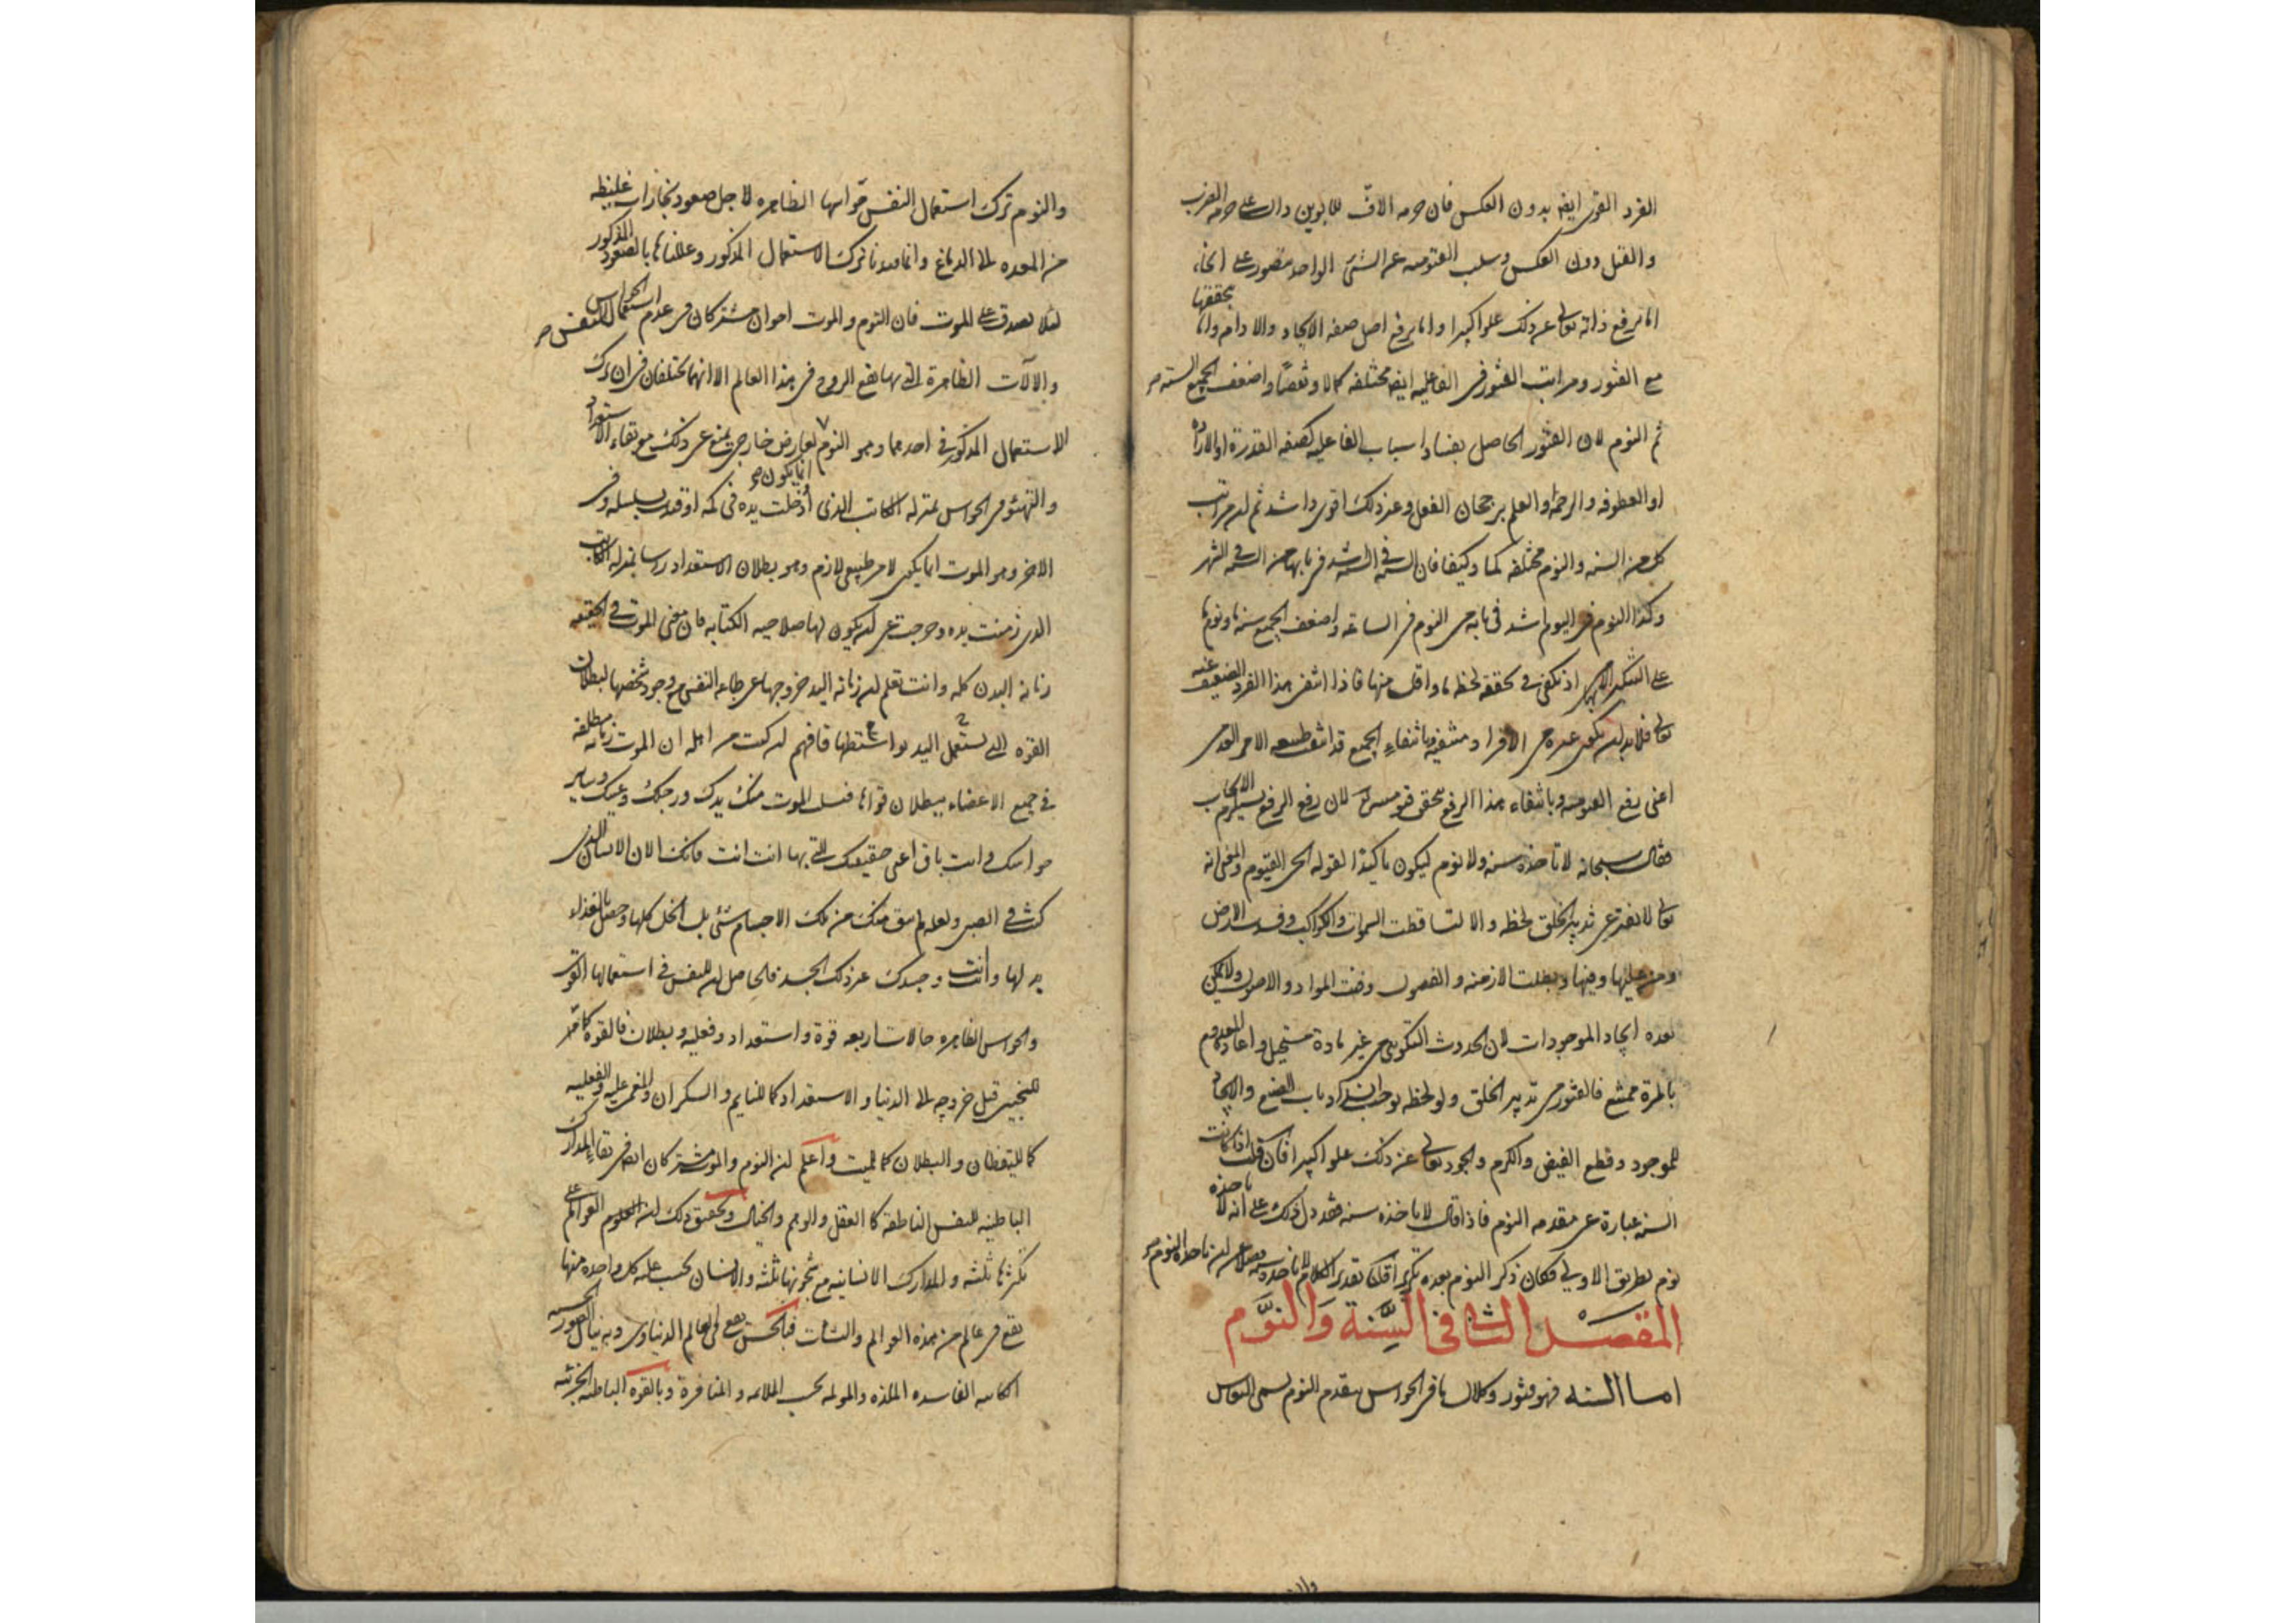 الفرد القوى ايضا بدون العكس فان حرمه الافّ للابوين دال على حرمه الضرب
والقتل دون العكس وسلب القيوميه عن الشئ الواحد متصور على انحاء
اما برفع ذاته تعالى عن ذلك علوا كبيرا واما برفع اصل صفه الايجاد والادامه واما بتحققها
مع الفتور ومراتب الفتور فى الفاعليه ايضا مختلفه كمالا ونقصا واضعف الجميع السنه
ثم النوم لان الفتور الحاصل بفساد اسباب الفاعليه كصفه القدرة او الاراده
او العطوفه والرحمة والعلم برجحان الفعل وغير ذلك اقوى واشد ثم ان مراتب
كل من السنه والنوم مختلفه كما وكيفا فان السنه فى السنه اشد فى بابها من السنه فى الشهر
وكذا النوم فى اليوم اشد فى بابه من النوم فى الساعه واضعف الجميع سنة ونوما
على اذ يكفى فى تحققه لحظه ما واقل منها فاذا انتفى هذا الفرد الضعيف عنه
تعالى فلا بد ان يكون غيره من الافراد منتفيه وبانتفاء الجميع قد انتفى طبيعه الامر العدمى
اعنى رفع القيوميه وبانتفاء هذا الرفع تحقق قيوميته لان رفع الرفع يستلزم الايجاب
فقال سبحانه لا تاخذه سنه ولا نوم ليكون تاكيدا لقوله الحى القيوم والمعنى انه
تعالى لا يفتر عن تدبير الخلق لحظه والا لتساقطت السموات والكواكب وفسد الارض
ومن عليها وفيها وبطلت الازمنه والفصول وفنت المواد والاصول ولا يمكن
بعده ايجاد الموجودات لان الحدوث التكوينى من غير مادة مستحيل واعادة المعدوم
بالمرة ممتنع فالفتور من تدبير الخلق ولو لحظه يوجب انسداد باب الصنع والايجاد
للموجود وقطع الفيض والكرم والجود تعالى عن ذلك علوا كبيرا فان قلت اذا كانت
السنه عبارة عن مقدمه النوم فاذا قال لا تاخذه سنه فقد دل ذلك على انه لا ياخذه
نوم بطريق الاولى فكان ذكر النوم بعده تكريرا قلنا تقدير الكلام لا تاخذه سنه فضلا عن ان ياخذه النوم
المقصد الثانى فى السِّنة وَالنوَّم
اما السنه فهو فتور وكلال ما فى الحواس يتقدم النوم يسمى النعاس
والنوم ترك استعمال النفس قواها الظاهره لاجل صعود بخارات غليظه
من المعده الى الدماغ وانما قيدنا ترك الاستعمال المذكور وعللناها بالصعود المذكور
لئلا يصدق على الموت فان النوم والموت اخوان مشتركان فى عدم استعمال النفس الحواس
والالات الظاهرة التى بها يقع الروح فى هذا العالم الا انهما يختلفان فى ان ترك
الاستعمال المذكور فى احدهما وهو النوم انما يكون لعارض خارجى يمنع عن ذلك مع بقاء الاستعداد
والتهيئو فى الحواس بمنزله الكاتب الذى ادخلت يده فى كمه او قدت بسلسله وفى
الاخر وهو الموت انما يكون لامر طبيعى لازم وهو بطلان الاستعداد راسا بمنزله الكاتب
الذى زمنت يده وخرجت عن ان يكون لها صلاحيه الكتابه فان معنى الموت فى الحقيقه
زمانه البدن كله وانت تعلم ان زمانه اليد خروجها عن طاعه النفس مع وجود شخصها لبطلان
القوه التى تستعمل اليد بواسطتها فافهم ان كنت من اهله ان الموت زمانه مطلقه
فى جميع الاعضاء ببطلان قواها فسل الموت منك يدك ورجلك وعينك وساير
حواسك وانت باق اعنى حقيقتك التى بها انت انت فانك الان الانسان الذى
كنت فى الصبى ولعله لم يبق منك من تلك الاجسام شئ بل انحل كلها وحصل بالغذاء
بدلها وانت انت وجسدك غير ذلك الجسد فالحاصل ان للنفس فى استعمالها القوى
والحواس الظاهره حالات اربعه قوة واستعداد وفعليه وبطلان فالقوه كما
للجنين قبل خروجه الى الدنيا والاستعداد كما للنايم والسكران والمغمى عليه والفعليه
كما لليقظان والبطلان كما للميت واعلم ان النوم والموت مشتركان ايضا فى بقاء المدارك
الباطنيه للنفس الناطقه كا العقل والوهم والخيال وتحقيق ذلك ان العلوم العوالم على
كثرتها ثلثه والمدارك الانسانيه مع شجونها ثلثه والانسان بحسب غلبه كل واحده منها
يقع فى عالم من هذه العوالم والنشات فبالحس يقع فى العالم الدنياوى وبه ينال الصور الحسيه
الكاينه الفاسده الملذه والمولمه بحسب الملائمه والمنافرة وبالقوه الباطنيه الجزئيه